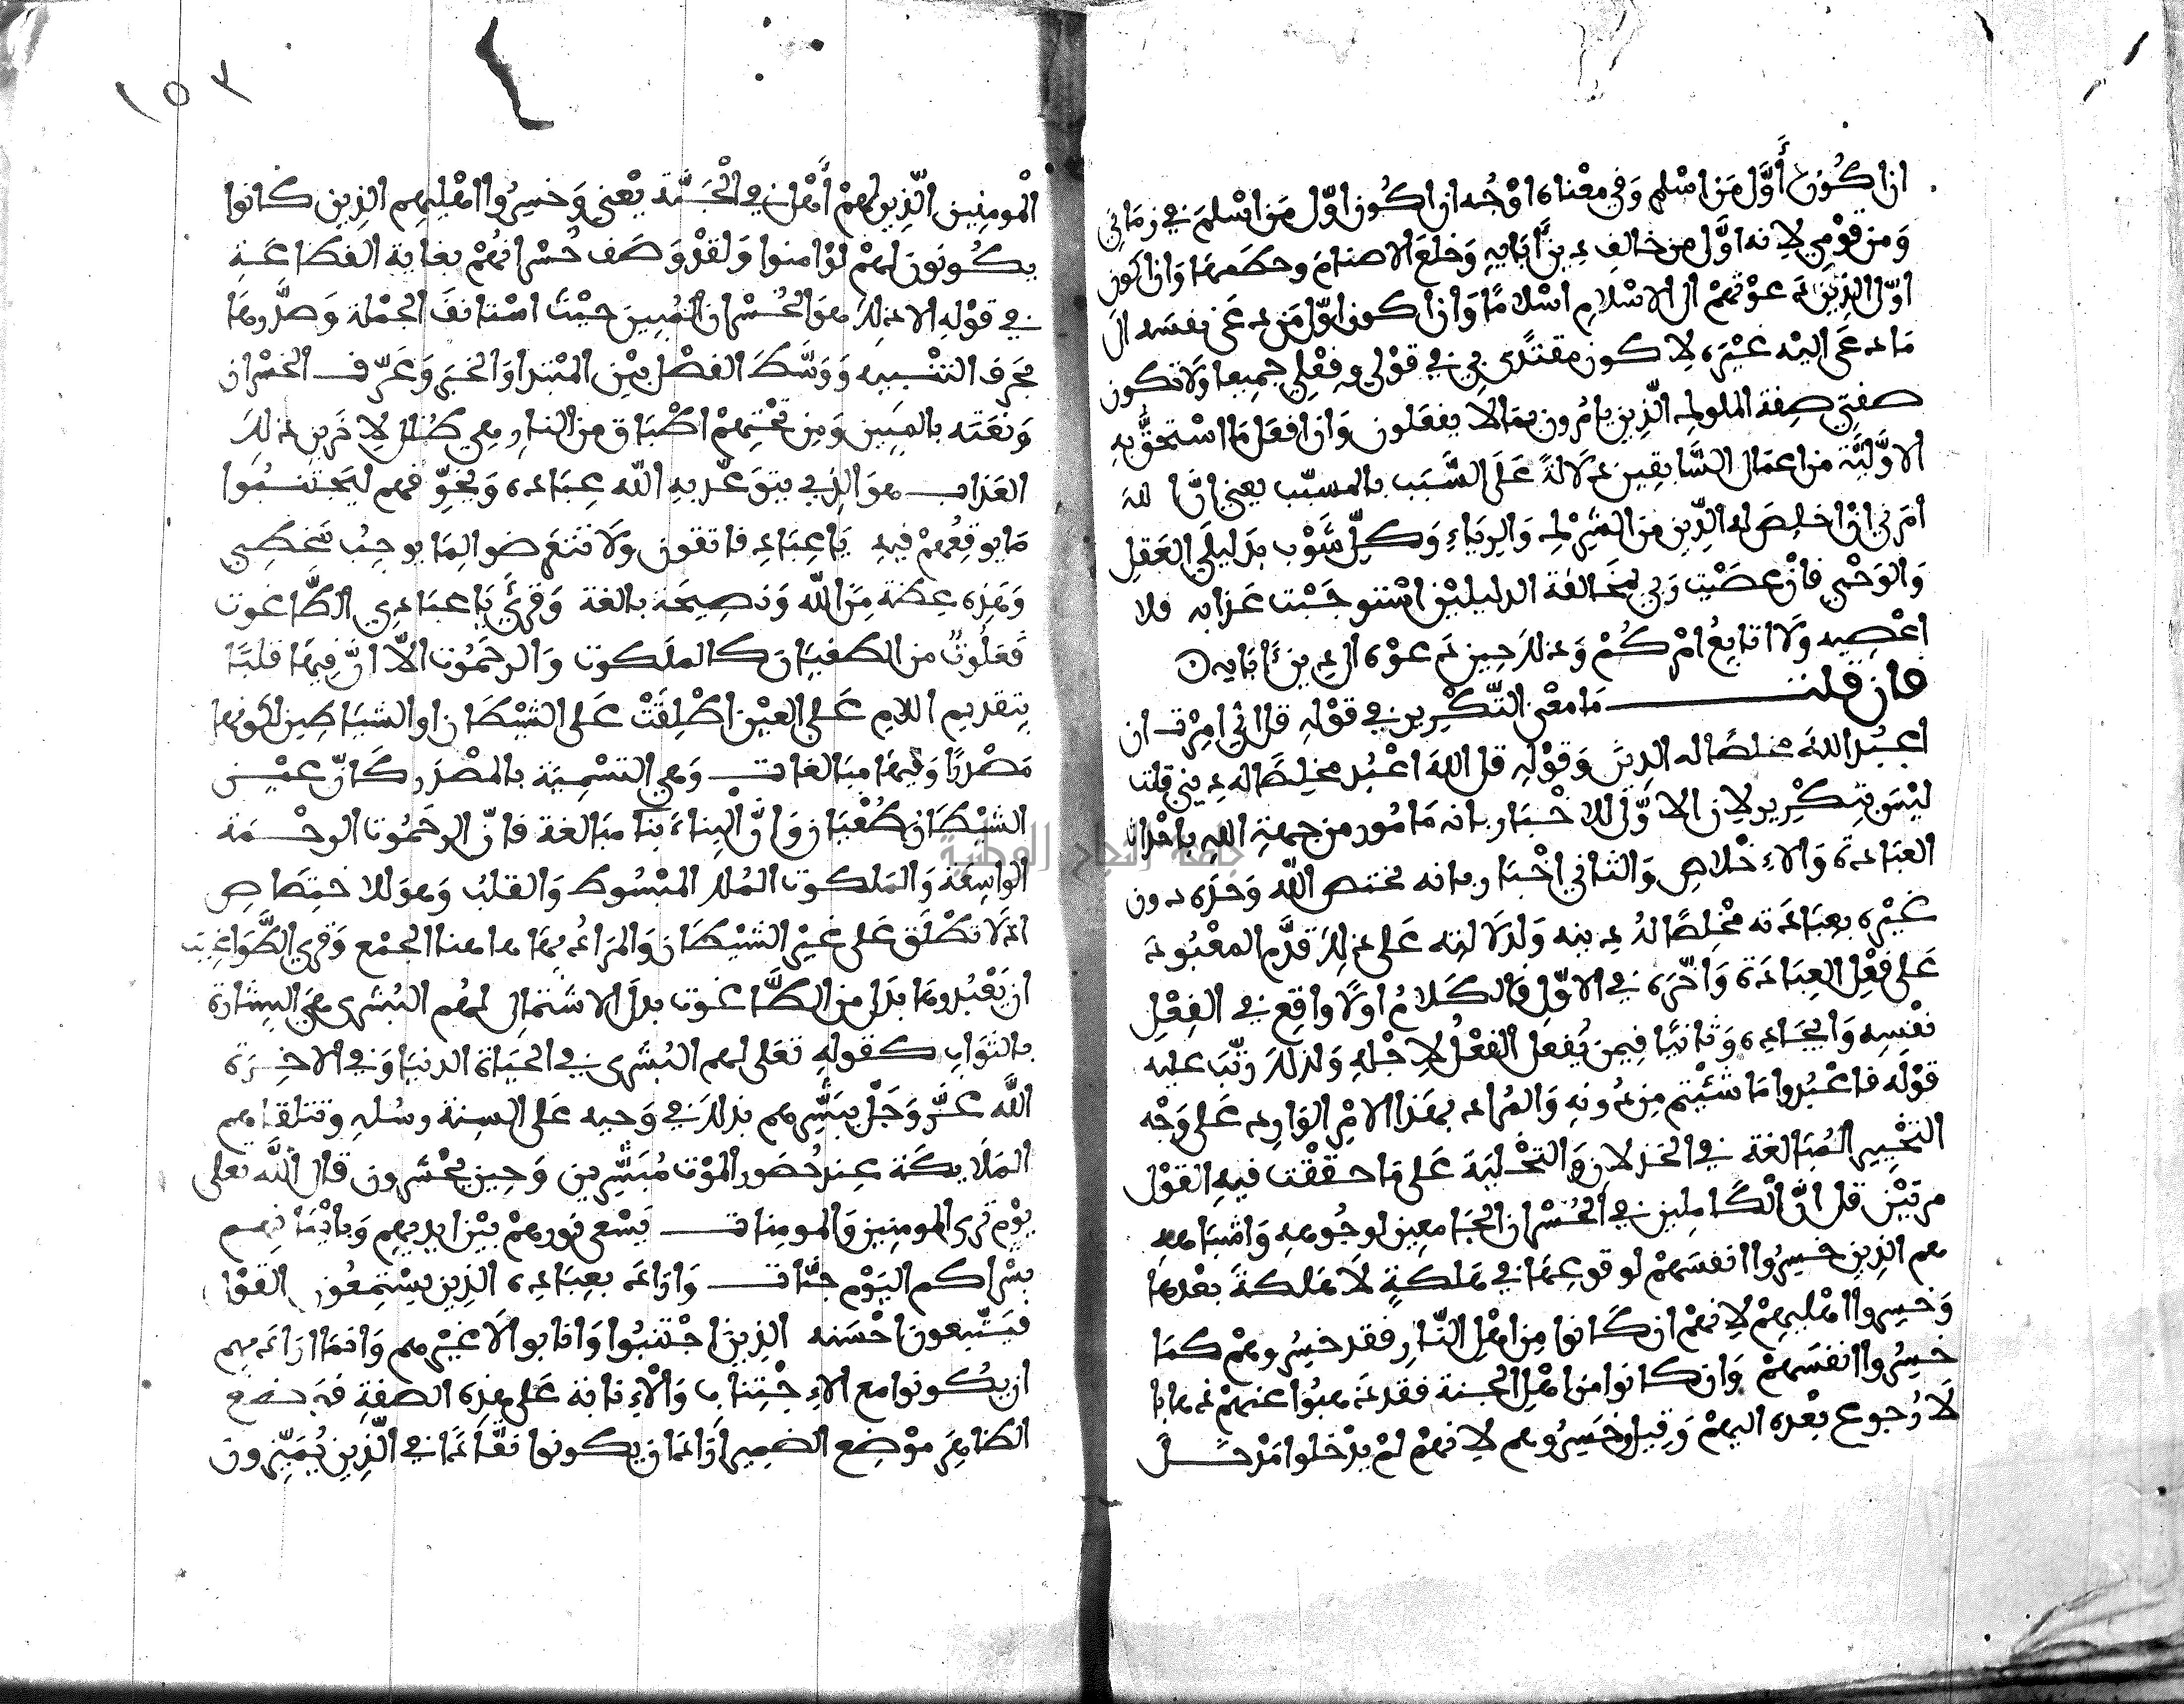 ان اكُون أَوَّل مَن اسْلم وَفي معْناه اوْجُه ان اكُون اوّل مَن اسْلمَ في زمَاني
وَمن قوْمي لانه اوَّل من خالف دينَ ءَابَايه وَخلعَ الاصنامَ وحطمهَا وَان اكون
اوّل الذِين دَعوْتهمْ الى الاسْلام اسْلامًا وَان اكون اوّل مَن دعَى نفسَه الى
مَا دعَى اليْه غيْرَه لاكون مقتدًى بي في قوْلي وفعْلي جميعا وَلا تكون
صفتي صِفة الملوك الّذين يامُرون بمَا لا يفعَلون وَان افعَل مَا اسْتحقُّ به
الاوَّليّة من اعمَال السَّابقِين دلالةً عَلى السَّبَب بالمسبّب يعني انّ اللهَ
امَرني انْ اخلِصَ له الدِّين مِنَ الشرْك وَالريَاءِ وَكلّ شَوْب بدَليلَي العَقل
وَالوَحْي فانْ عصَيْت رَبي بمخَالفة الدليليْن اسْتوجَبْت عَذابه فلا
اعْصِيه وَلا اتابِعُ امْركُمْ وَذلكَ حِين دَعوْه الى دين ءَابَايه
فان قلت مَا معْنى التّكْرِير في قوْلهِ قل اني امِرْت ان
اعبُد اللهَ مخلصًا له الدينَ وَقوْلهِ قل اللهَ اعْبُد مخلِصًا له ديني قلت
ليْسَ بتكْرِير لان الاوَّل للاخْبَار بانه مَامُور من جهة الله باحْداث
العبَادة وَالاءِخْلاص وَالثاني اخْبَار بانه يختص اللّه وَحْدَه دون
غيْره بعبَادته مخْلِصًا لهُ دِينه وَلدلالته عَلى ذلكَ قدَّم المعْبُود
عَلى فعْل العِبَادَة وَاخّرَه في الاوّل فالكَلامُ اولًا واقع في الفِعْل
نفْسِه وَايجَاده وَثانيًا فِيمن يُفعل الفعْلُ لاجْله وَلذلكَ رتّبَ عليه
قوْلَه فاعْبُدوا مَا شئْتم مِن دُونِه وَالمُراد بهَذا الامْر الوَارد عَلى وَجْه
التخْيير المُبَالغة في الخذلان وَالتخْليَة عَلى مَا حققْت فيه القوْل
مرتيْن قل انّ الكَاملين في الخُسْران الجَامعِين لوجُوهه وَاسْبَابه
هم الذين خسِرُوا انفسَهمْ لوقوعهَا في هَلكةٍ لا هَلكةَ بعْدهَا
وَخسِروا اهْليهِمْ لانهمْ ان كَانوا مِن اهْل النّار فقد خسِرُوهمْ كمَا
خسِرُوا انفسَهمْ وَان كانوا من اهْل الجنة فقد ذَهبُوا عنهمْ ذهابا
لا رُجوع بعْده اليهمْ وَقيل وخَسِرُوهم لانهمْ لمْ يدْخلوا مَدْخل
١٥٢
الْمومِنِين الّذِين لهمْ أَهْل في الجَنَّة يعْني وَخسِرُوا اهْليهم الذِين كانوا
يكُونونَ لهمْ لوْ امنوا وَلقدْ وَصَف خُسْرانهُمْ بغاية الفظاعَة
في قوْلهِ الا ذلكَ هوَ الخُسْران المُبِين حيْث اسْتانفَ الجمْلة وَصدَّرهَا
بحَرف التنْبيه وَوَسَّطَ الفصْل بيْن المبْتدا وَالخبَر وَعَرّف الخسْران
وَنعَتَه بالمبِين وَمِن تحْتهِمْ اطْبَاق من النار هي ظُلل لاخَرين ذلكَ
العَذاب هوَ الذِي يتوَعّد بهِ اللّه عِبَاده وَيخوِّفهم ليَجتنبُوا
مَا يوقعُهمْ فيه يَا عِبَاد فاتقون وَلا تتعَرضوا لِمَا يوجِبُ سَخطِي
وَهَذه عِظة مِنَ اللّه وَنصِيحَة بالغة وَقرِئَ يَا عبَادي الطَّاغوت
فَعَلُوتٌ من الطغيَان كالملَكوت وَالرحَمُوت الّا انّ فِيهَا قلبًا
بتقديم اللام عَلى العيْن اطْلِقَتْ عَلى الشيْطَان او الشيَاطِين لكونهَا
مَصْدرًا وَفيهَا مبَالغات وَهي التسْميَة بالمصْدَر كَانّ عيْن
الشيْطَان طُغْيَان وَانّ البناءَ بناء مبَالغة فانّ الرحَمُوت الرحْمَة
الوَاسِعَة وَالمَلكوت المُلك المبْسُوط وَالقلبُ وَهوَ للاختِصَاص
اذ لا تطْلَق عَلى غيْر الشيْطَان وَالمرَادُ بهَا هاهنا الجمْع وَقرِئ الطَّوَاغيت
ان يَعْبُدوهَا بدَل من الطَّاغوت بدلَ الاشتمَال لهُم البُشرى هيَ البِشَارة
بالثوَاب كقولهِ تعَلى لهم البُشرى في الحيَاة الدنيَا وَفي الاخِرَة
اللّه عَزَّ وَجَلّ يبَشّرهم بذلكَ في وَحيه عَلى السِنة رسُله وتتلقاهم
المَلايكَة عِند حُضور المَوْت مُبَشّرين وَحِين يحْشرون قال اللّه تعلى
يوْم ترى المومِنين وَالمومنات يَسْعى نورهمْ بيْن ايديهم وَبايْمَانهم
بشراكم اليَوْم جنّات وَارَادَ بعِبَاده الذِين يسْتمِعُون القوْل
فيَتّبعون احْسَنه الذِينَ اجْتنبُوا وَانابوا لا غيْرهم وَانمَا ارَادَ بهم
ان يكُونوا مع الاءِجْتِناب وَالاءِنابة عَلى هذه الصفة فوَضع
الظاهِرَ موْضِع الضمِير ارَاد ان يكونوا نقّادًا في الّذِين يُميّزون